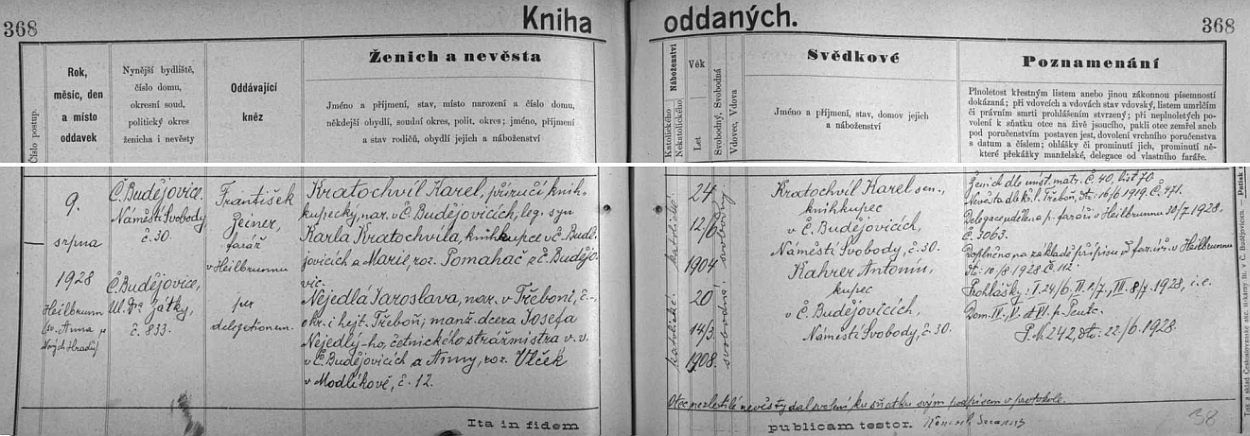 368
Kniha oddaných.
368
Číslo postup.
Rok,
měsíc, den
a místo
oddavek
Nynější bydliště,
číslo domu,
okresní soud,
politický okres
ženicha i nevěsty
Oddávající
kněz
Ženich a nevěsta
Jméno a příjmení, stav, místo narození a číslo domu,
někdejší obydlí, soudní okres, polit. okres; jméno, příjmení
a stav rodičů, obydlí jejich a náboženství
Náboženství
Katolického
Nekatolického
Věk
Let
Svobodný, Svobodná
Vdovec, Vdova
Svědkové
Jméno a příjmení, stav, domov jejich
a náboženství
Poznamenání
Plnoletost křestným listem anebo jinou zákonnou písemností
dokázaná; při vdovcích a vdovách stav vdovský, listem úmrtním
či právním smrti prohlášením stvrzený; při neplnoletých po-
volení k sňatku otce na živě jsoucího, pakli otec zemřel aneb
pod poručenstvím postaven jest, dovolení vrchního poručenstva
s datum a číslem; ohlášky či prominutí jich, prominutí ně-
které překážky manželské, delegace od vlastního faráře.
9.
srpna
1928
Heilbrunn
sv. Anna u
Nových Hradů
Č. Budějovice.
Náměstí Svobody
č. 30.
Č. Budějovice,
Ul. Dr. Zátky,
č. 833.
František
farář
v Heilbrunnu
per
delegationem.
Kratochvíl Karel, příručí knih-
kupecký, nar. v Č. Budějovicích, leg. syn
Karla Kratochvíla, knihkupce v Č. Budě-
jovicích a Marie, roz. Tomahač z Č. Budějo-
vic.
Nejedlá Jaroslava, nar. v Třeboni, č.-,
okr. i hejt. Třeboň; manž. dcera Josefa
Nejedlý-ho, četnického strážmistra v. v.
v Č. Budějovicích a Anny, roz. Vlček
v Modlíkově, č. 12.
katolické
katolické
24
12/6
1904
20
14/3
1908.
svobodný
svobodná
Kratochvíl Karel sen.,
knihkupec
v Č. Budějovicích,
Náměstí Svobody, č. 30.
Kahrer Antonín,
kupec
v Č. Budějovicích,
Náměstí Svobody, č. 30
Ženich dle úmst. matr. Č. 40, list 70.
Nevěsta dle kř. l. Třeboň, dto. 16/6 1919. Č. 471.
Delegace udělena p. faráři v Heilbrunnu 30/7 1928.
Č. 3063.
Doplněno na základě přípisu f. farář. v Heilbrunnu
dto. 10/8 1928 Č. 112.
Prohlášky: I. 24/6, II. 1/7, III. 8/7 1928, i. e.
Dom. IV., V. et VI. p. Pent.
P. M. 242, dto. 22/6 1928.
Otec nezletilé nevěsty dal svolení ku sňatku svým podpisem v protokole.
Ita in fidem
publicam testor.
38